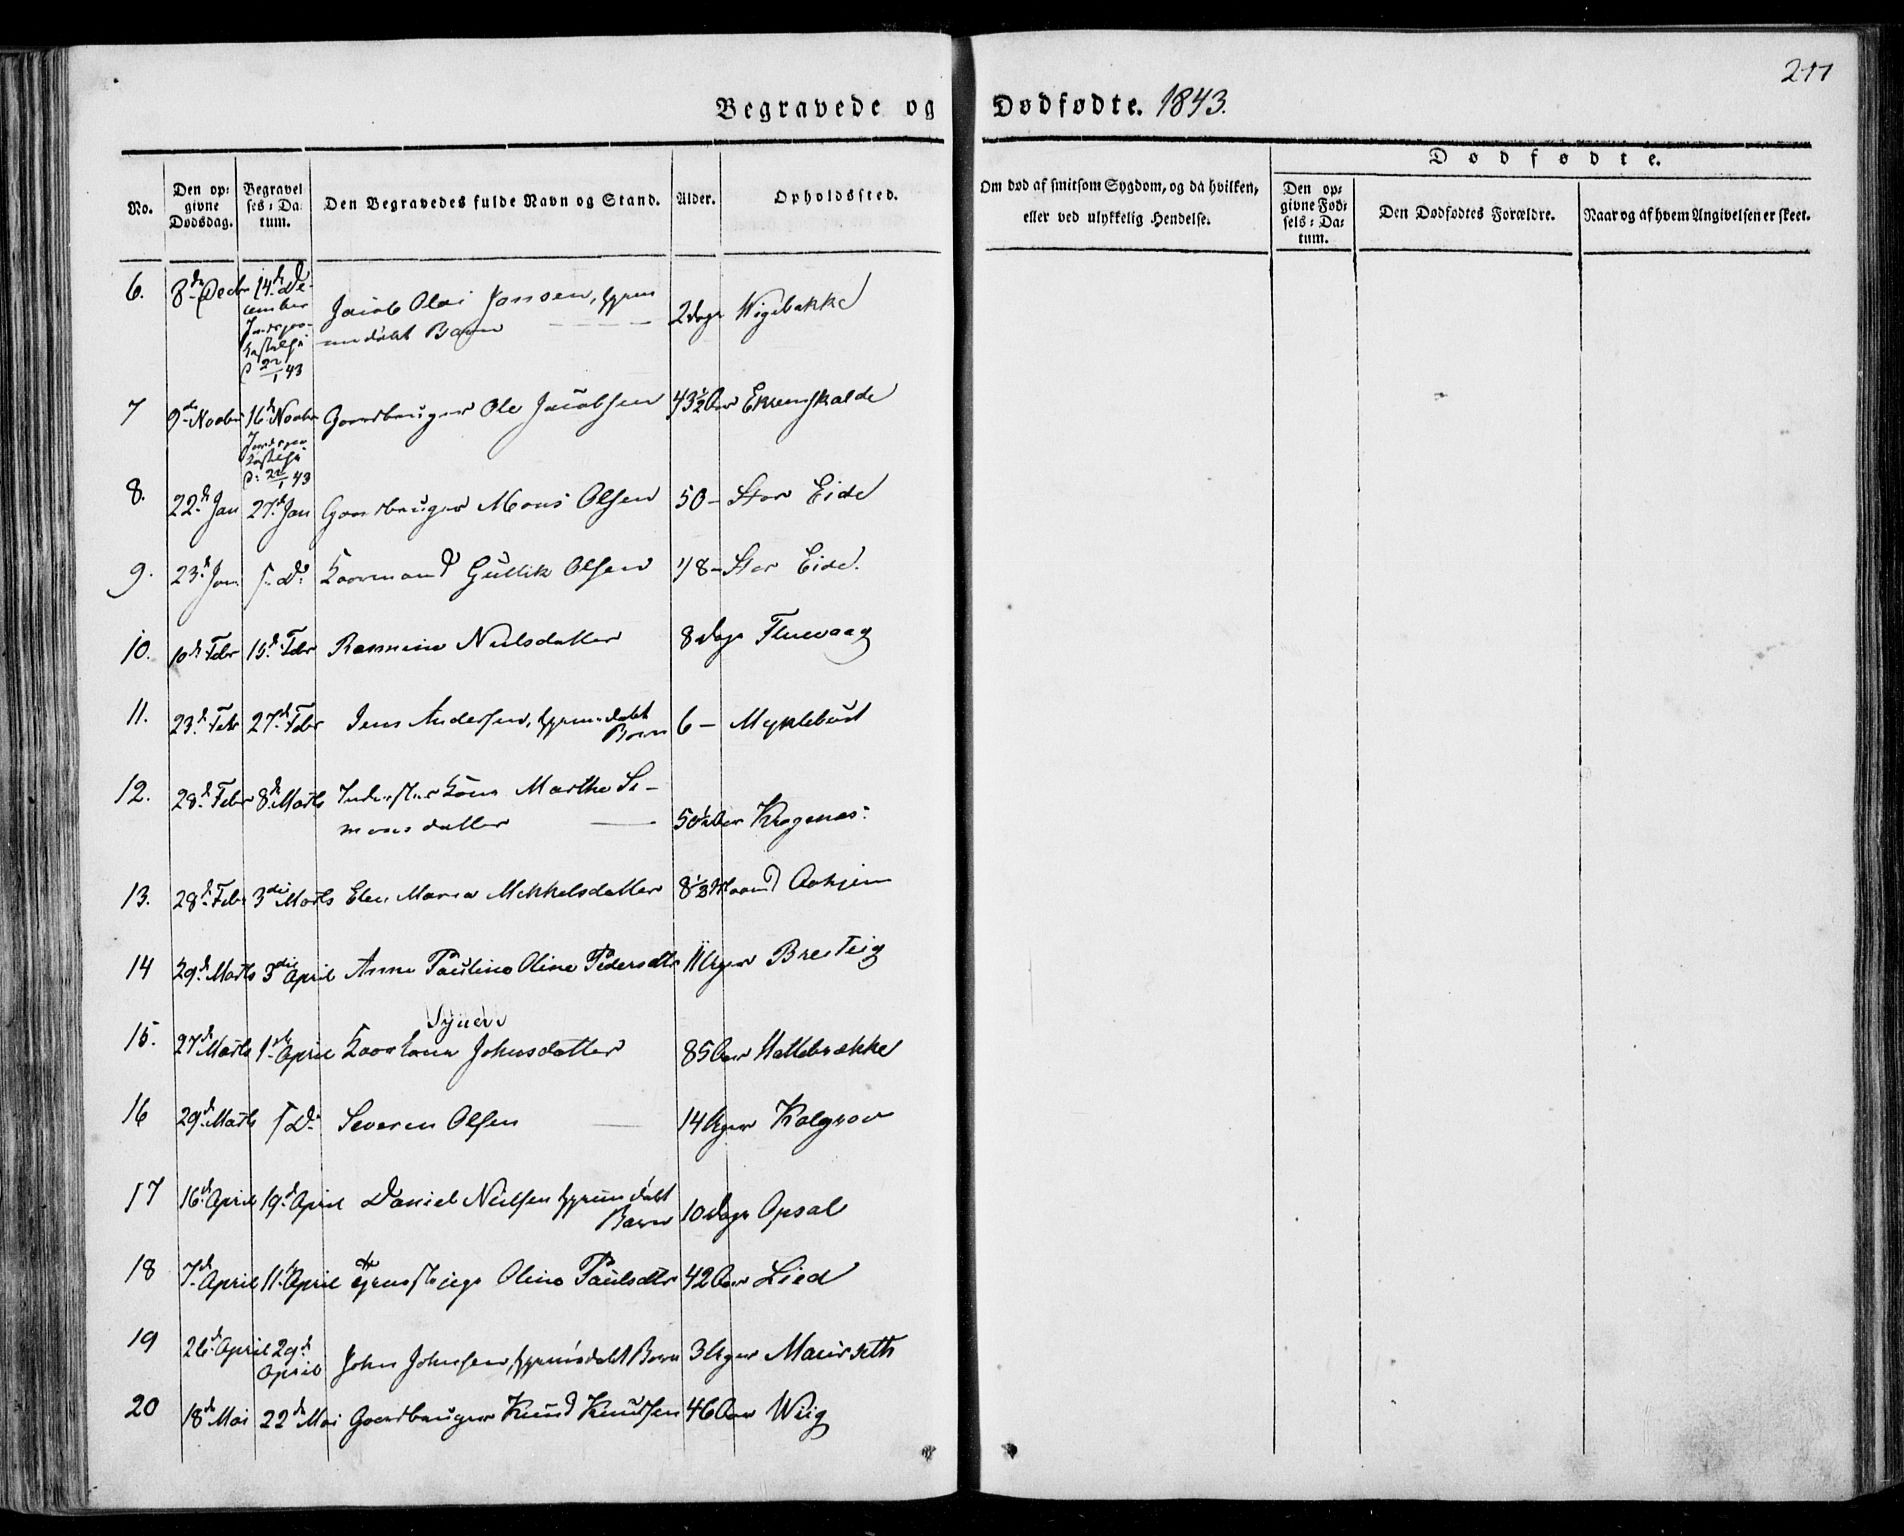 211
Begravede og Dødfødte. 1843.
No.
Den op-
givne
Dødsdag.
Begravel
ses-Da-
tum.
Den Begravedes fulde Navn og Stand.
Alder.
Opholdssted.
Om død af smitsom Sygdom, og da hvilken,
eller ved ulykkelig Hendelse.
Dødfødte.
Den op-
givne Fød-
sels-Da-
tum.
Den Dødfødtes Forældre.
Naar og af hvem Angivelsen er skeet.
6. 8de Decbr 14de De-
cember
Jordspaa-
kastelse
d 22/1 43
Jacob Olai Jansen, hjem
medøbt Barn 2 Dage Wigebakke
7 9de Novbr 16de Novbr Gaardbruger Ole Jacobsen 43½ Aar Ekremskalde
Jordspaa-
kastelse
d: 22/1 43
8. 22de Jan 27de Jan Gaardbruger Mons Olsen 50 - Stor Eide
9. 23de Jan s. D. Kaarmand Gullik Olsen 78 - Stor Eide.
10. 10de Febr 15de Febr Rasmine Nielsdatter 8 Dage Fluevaag
11. 23de Febr 27de Febr Jens Andersen, hjemmedøbt
Barn 6 - Myklebust
12. 28de Febr 8de Marts Inderster Kone Marthe Si-
monsdatter 50½ Aar Kragenæs.
13. 28de Febr 3die Marts Elen Maria Mikkelsdatter 8½ Maaned Aahjem
14 29de Marts 3die April Anne Pauline Oline Pedersdtr 11 Uger Breiteig
15. 27de Marts 1ste April Kaarkone Syneve Johnsdatter 85 Aar Hattebrække
16 29de Marts s D. Severin Olsen 14 Uger Kalgrov
17 16de April 19de April Daniel Nielsen hjemmedøbt
Barn 10 Dage Opsal
18 7de April 11te April Tjenestepige Oline Paulsdtr 42 Aar Lied
19 26de April 29de
April John Johnsen, hjemmedøbt Barn 3 Uger Maurseth
20 18de Mai 22de Mai Gaardbruger Knud Knudsen 46 Aar Wiig